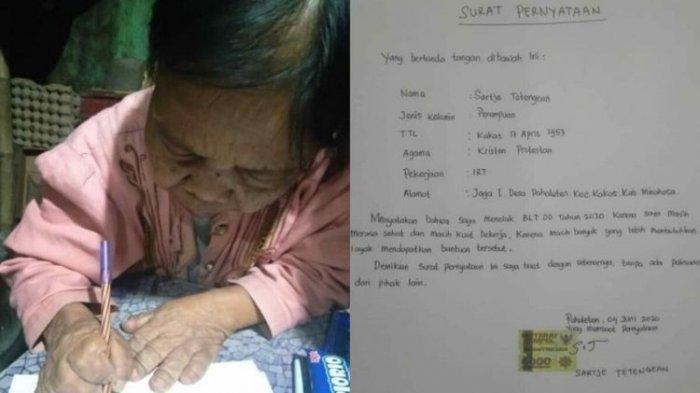 SURAT PERNYATAAN
Yang bertanda tangan dibawah Ini :
Nama : Sartje Tetengean
Jenis Kelamin : Perempuan
TTL : Kakas 17 April 1953
Agama : Kristen Protestan
Pekerjaan : IRT
Alamat : Jaga I. Desa Pahaleten Kec. Kakas. Kab Minahasa.
Menyatakan bahwa saya Menolak BLT DD Tahun 2020 Karena saya masih
merasa sehat dan masih Kuat bekerja, Karena masih banyak yang lebih membutuhkan
layak mendapatkan bantuan tersebut.
Demikian Surat pernyataan ini saya buat dengan sebenarnya, tanpa ada paksaan
dari pihak lain.
Pahaleten, 04 Juni 2020
Yang Membuat Pernyataan
S.T
SARTJE TETENGEAN